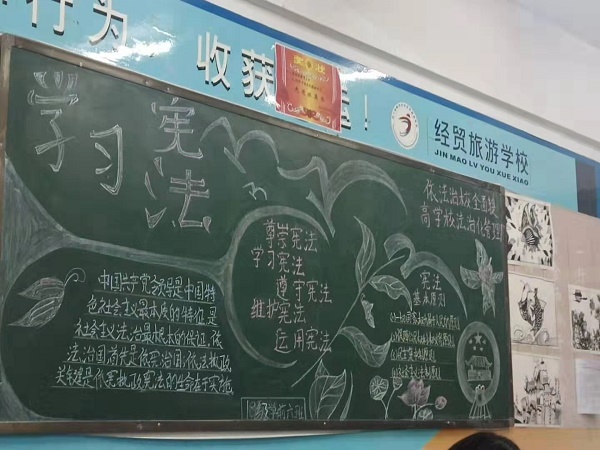 行为
收获
奖状
经贸旅游学校
JIN MAO LV YOU XUE XIAO
学习
宪法
依法治校全面提
高学校法治化管理
尊崇宪法
学习宪法
遵守宪法
维护宪法
运用宪法
宪法
基本原则
中国共产党领导是中国特
色社会主义最本质的特征是
社会主义法治最根本的保证依
法治国首先是依宪治国依法执政
关键是依宪执政宪法的生命在于实施
学前六班